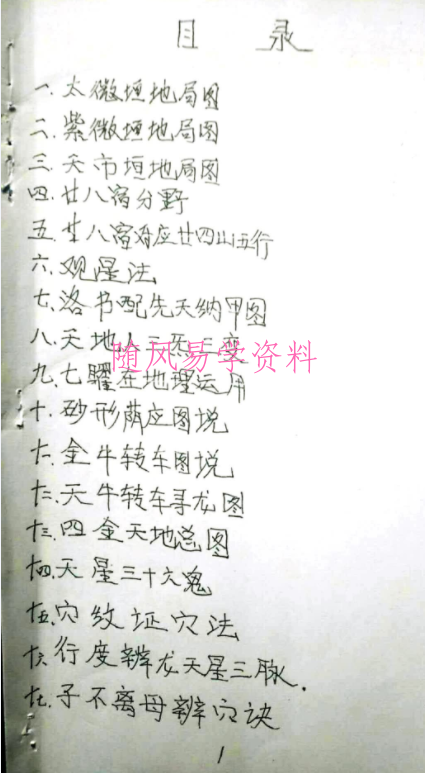 目 录
一.太微垣地局图
二.紫微垣地局图
三.天市垣地局图
四.廿八宿分野
五.廿八宿对应廿四山五行
六.观星法
七.洛书配先天纳甲图
八.天地人三炁三变
随风易学资料
九.七曜在地理运用
十.砂形荫应图说
十一.金牛转车图说
十二.天牛转车寻龙图
十三.四金天地总图
十四.天星三十六鬼
十五.穴纹证穴法
十六.行度辨龙天星三脉.
十七.子不离母辨穴诀
1